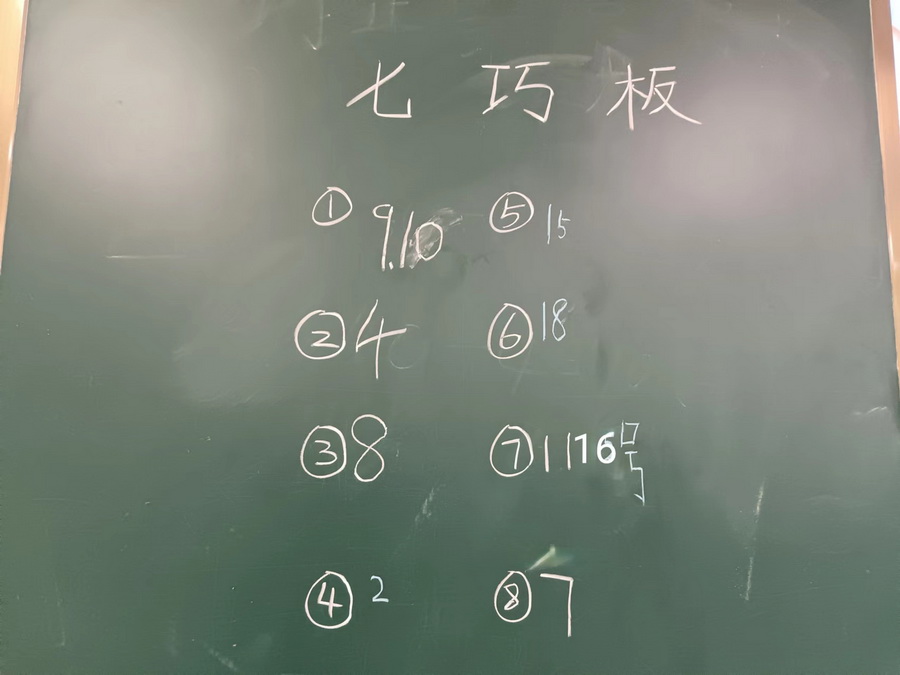 七巧板
① 9.10 ⑤ 15
② 4 ⑥ 18
③ 8 ⑦ 1116号
④ 2 ⑧ 7